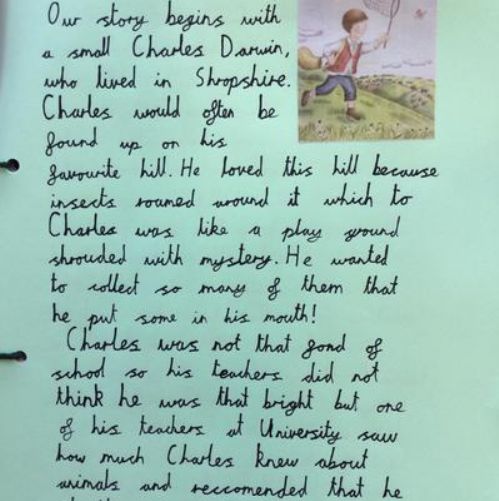 Our story begins with
a small Charles Darwin,
who lived in Shropshire.
Charles would often be
found up on his
favourite hill. He loved this hill because
insects roamed around it which to
Charles was like a play ground
shrouded with mystery. He wanted
to collect so many of them that
he put some in his mouth!
Charles was not that fond of
school so his teachers did not
think he was that bright but one
of his teachers at University saw
how much Charles knew about
animals and reccomended that he